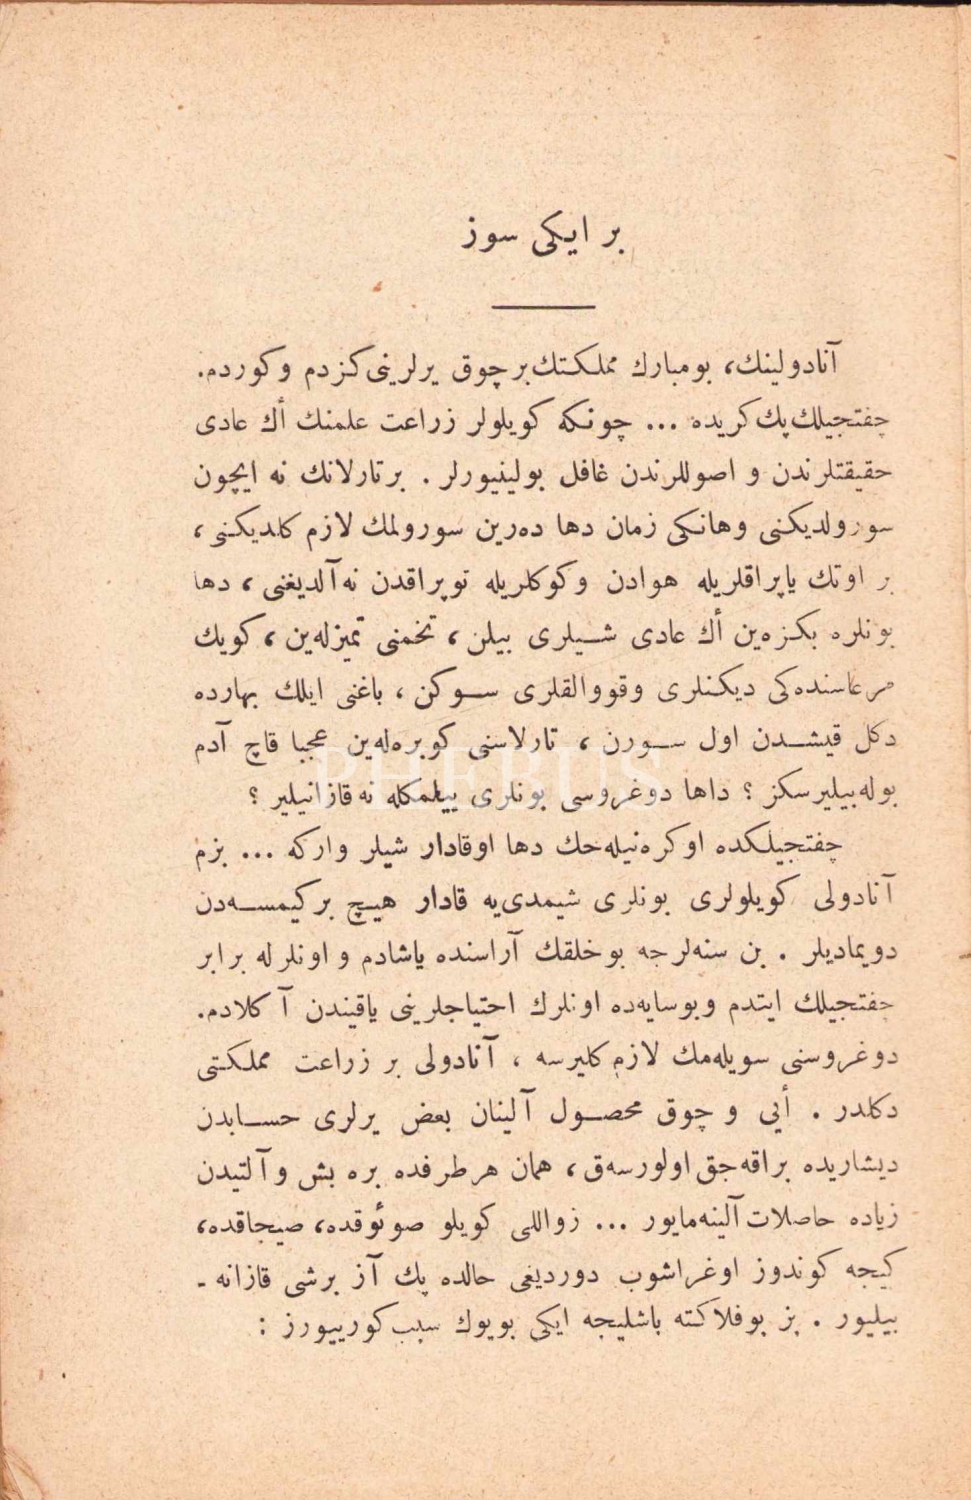 بر ايكى سوز
آنادولينك، بو مبارك مملكتك بر چوق يرلرينى كزدم و كوردم.
چفتجيلك پك كريده ... چونكه كويلولر زراعت علمنك أك عادى
حقيقتلرندن و اصوللرندن غافل بولينيورلر . بر تارلانك نه ايچون
سورولديكنى و هانكى زمان دها دەرين سورولمك لازم كلديكنى ،
بر اوتك ياپراقلريله هوادن و كوكلريله توپراقدن نه آلديغنى ، دها
بونلره بكزەين أك عادى شيلرى بيلن ، تخمنى تميزلەين ، كويك
مرعاسندەكى ديكنلرى و قووالقلرى سوكن ، باغنى ايلك بهارده
دكل قيشدن اول سورن ، تارلاسنى كوبرەلەين عجبا قاچ آدم
بولەبيليرسكز ؟ داها دوغروسى بونلرى بيلمكله نه قازانيلير ؟
چفتجيلكده اوكرەنيلەجك دها اوقادار شيلر واركه ... بزم
آنادولى كويلولرى بونلرى شيمدى‌يه قادار هيچ بر كيمسەدن
دويماديلر . بن سنەلرجه بو خلقك آراسنده ياشادم و اونلرله برابر
چفتجيلك ايتدم و بو سايەده اونلرك احتياجلرينى ياقيندن آكلادم.
دوغروسنى سويلەمك لازم كليرسه ، آنادولى بر زراعت مملكتى
دكلدر . أيى و چوق محصول آلينان بعض يرلرى حسابدن
ديشاريده براقەجق اولورسەق ، همان هر طرفده بره بش و آلتيدن
زياده حاصلات آلينەمايور ... زواللى كويلو صوئوقده، صيجاقده،
كيجه كوندوز اوغراشوب دورديغى حالده پك آز برشى قازانه -
بيليور . بز بو فلاكته باشليجه ايكى بويوك سبب كورييورز :
PHEBUS